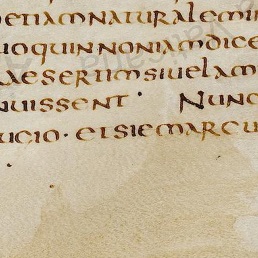 etiamnaturalemin
uoquinnoniamdice
raeseriimsiuelam
nuissent · Nunc
ucio · etsiemarcu